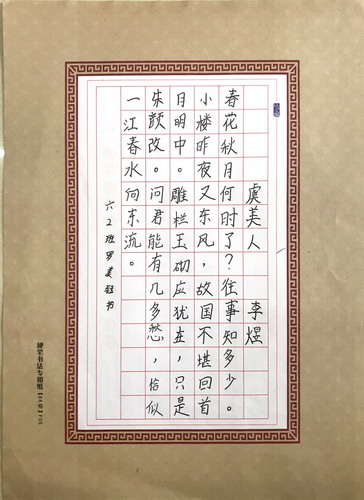 虞美人 李煜
春花秋月何时了？往事知多少。
小楼昨夜又东风，故国不堪回首
月明中。雕栏玉砌应犹在，只是
朱颜改。问君能有几多愁，恰似
一江春水向东流。
六2班罗美钰书
硬笔书法专用纸